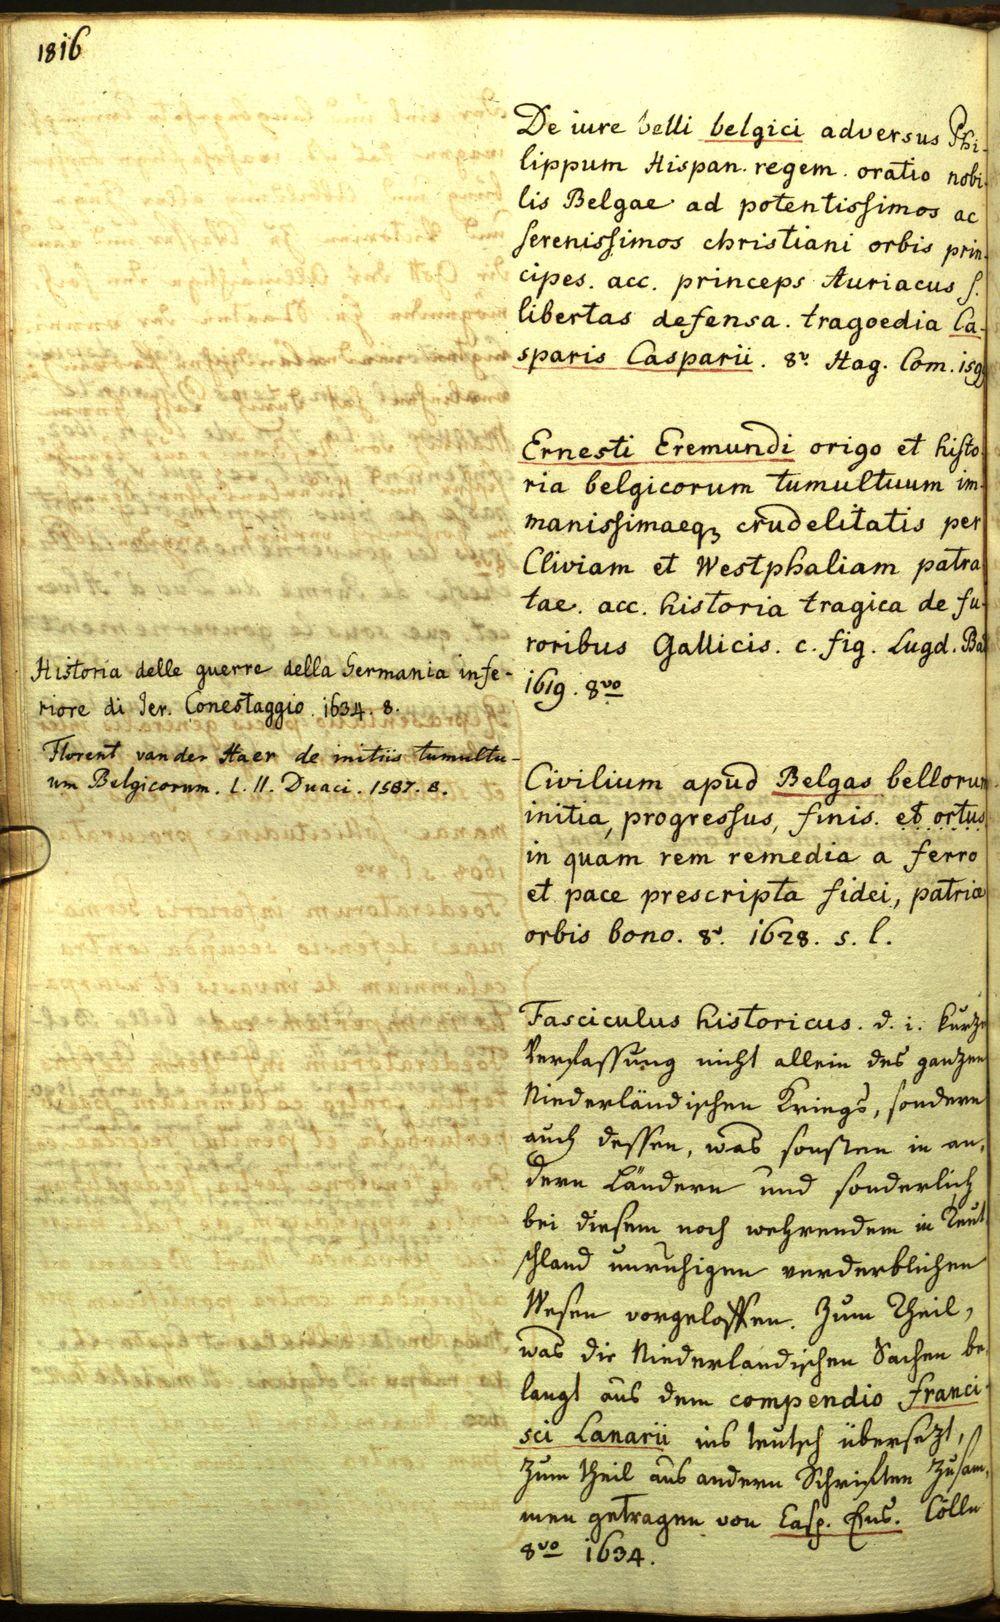 1816
De iure belli belgici adversus Phi-
lippum Hispan. regem. oratio nobi-
lis Belgae ad potentissimos ac
serenissimos christiani orbis prin-
cipes. acc. princeps Auriacus s.
libertas defensa. tragoedia Ca-
sparis Casparii. 8º. Hag. Com. 159
Ernesti Eremundi origo et histo-
ria belgicorum tumultuum im-
manissimaeq3 crudelitatis per
Cliviam et Westphaliam patra-
tae. acc. historia tragica de fu-
roribus Gallicis. c. fig. Lugd. Bat
1619. 8vo
Historia delle guerre della Germania infe-
riore di Jer. Conestaggio 1634. 8.
Florent vander Haer de initiis tumultu-
um Belgicorum. l. II. Duaci. 1587. 8.
Civilium apud Belgas bellorum
initia, progressus, finis. et ortus
in quam rem remedia a ferro
et pace prescripta fidei, patriae
orbis bono. 8º. 1628. s. l.
Fasciculus historicus. d. i. kurze
Verfassung nicht allein des ganzen
Niederländischen Kriegs, sondern
auch dessen, was sonsten in an-
dern Ländern und sonderlich
bei diesem noch wehrendem in Teut
schland unruhigen verderblichen
Wesen vorgeloffen. Zum Theil,
was die Niederlandischen Sachen be-
langt aus dem compendio Franci-
sci Lanarii ins teutsch übersezt,
zum theil aus andern Schriften zusam-
men getragen von Casp. Ens. Cölln
8vo 1634.